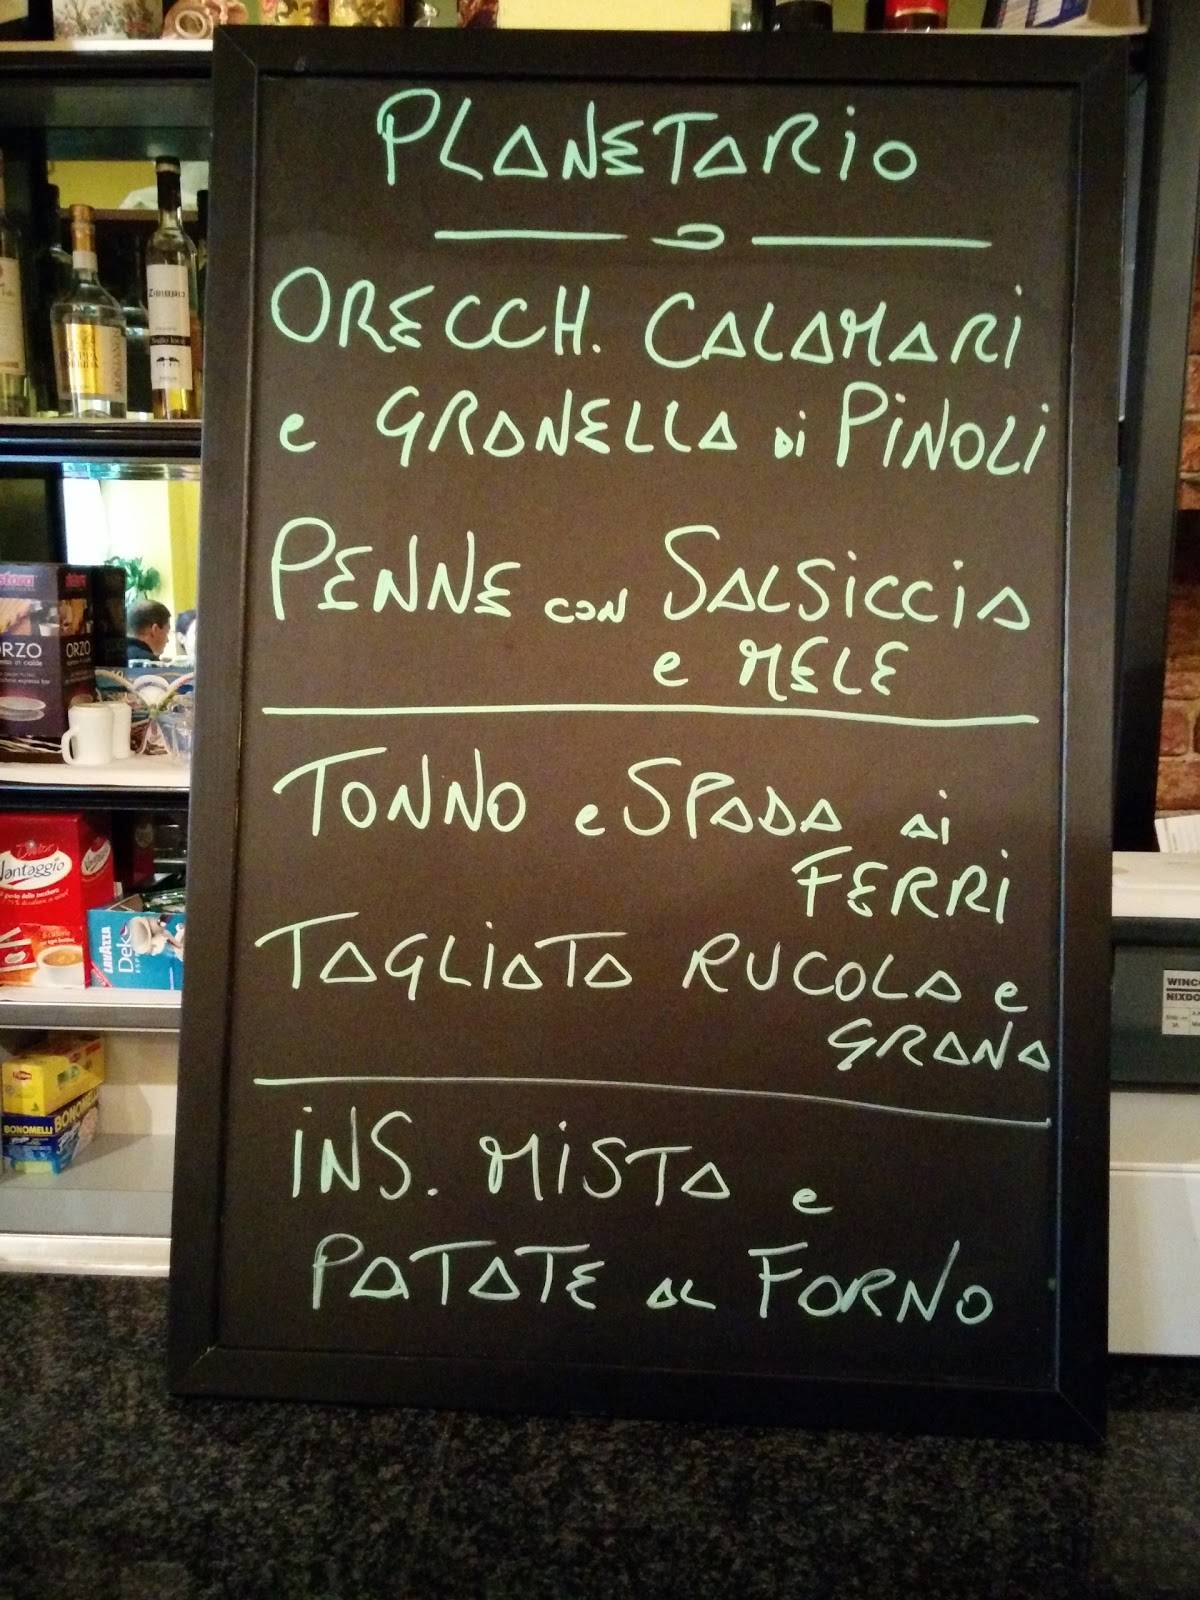 PLANETARIO
ORECCH. CALAMARI
e GRANELLA di PINOLI
PENNE con SALSICCIA
e MELE
TONNO e SPADA ai
FERRI
TAGLIATA RUCOLA e
GRANA
iNS. MISTA e
PATATE AL FORNO
ORZO
ORZO
Vantaggio
LAVAZZA
Dek
BONOMELLI
BONOMELLI
ZIBIBBO
WINCO
NIXDO